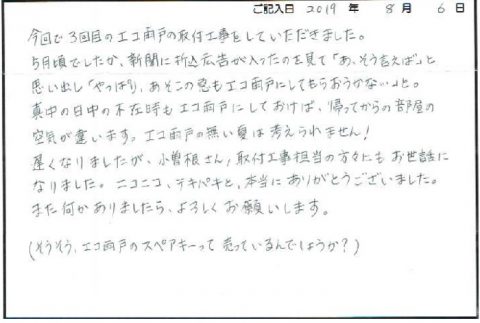 ご記入日 2019 年 8 月 6 日
今回で3回目のエコ雨戸の取付工事をしていただきました。
5月頃でしたか、新聞に折込広告が入ったのを見て「あ、そう言えば」と
思い出し「やっぱり、あそこの窓もエコ雨戸にしてもらおうかな…」と。
真中の日中の不在時もエコ雨戸にしておけば、帰ってからの部屋の
空気が違います。エコ雨戸の無い夏は考えられません!
遅くなりましたが、小曽根さん、取付工事担当の方々にもお世話に
なりました。ニコニコ、テキパキと、本当にありがとうございました。
また何かありましたら、よろしくお願いします。
(そうそう、エコ雨戸のスペアキーって売っているんでしょうか?)